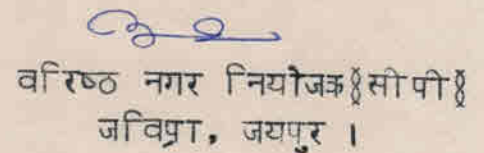 वरिष्ठ नगर नियोजक§सीपी§
जविप्रा, जयपुर ।